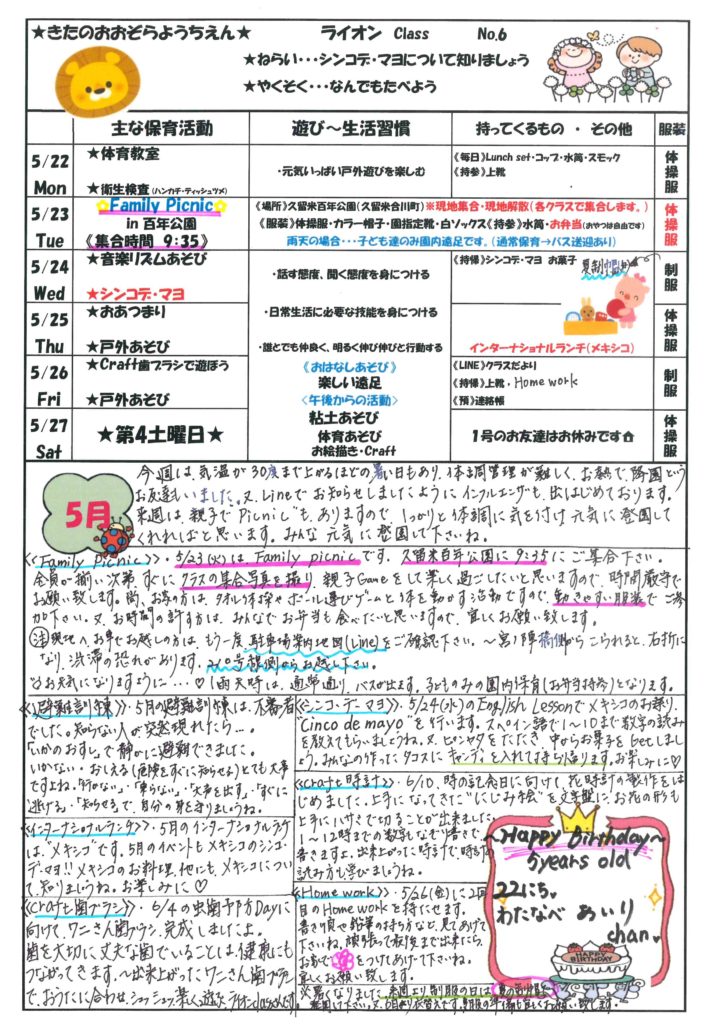 ★きたのおおぞらようちえん★ ライオン Class No.6
★ねらい・・・シンコデ・マヨについて知りましょう
★やくそく・・・なんでもたべよう
主な保育活動 遊び～生活習慣 持ってくるもの ・ その他 服装
5/22 Mon
★体育教室
★衛生検査(ハンカチ・ティッシュツメ)
・元気いっぱい戸外遊びを楽しむ
《毎日》Lunch set・コップ・水筒・スモック
《持参》上靴
体操服
5/23 Tue
Family Picnic
in 百年公園
《集合時間 9:35》
《場所》久留米百年公園(久留米合川町)※現地集合・現地解散(各クラスで集合します。)
《服装》体操服・カラー帽子・園指定靴・白ソックス《持参》水筒・お弁当(おやつは自由です)
雨天の場合・・・子ども達のみ園内遠足です。(通常保育→バス送迎あり)
体操服
5/24 Wed
★音楽リズムあそび
★シンコデ・マヨ
・話す態度、聞く態度を身につける
《持帰》シンコデ・マヨ お菓子
夏制帽
制服
5/25 Thu
★おあつまり
★戸外あそび
・日常生活に必要な技能を身につける
・誰とでも仲良く、明るく伸び伸びと行動する
インターナショナルランチ(メキシコ)
体操服
5/26 Fri
★Craft歯ブラシで遊ぼう
★戸外あそび
《おはなしあそび》
楽しい遠足
〈午後からの活動〉
《LINE》クラスだより
《持帰》上靴・Home work
《預》連絡帳
制服
5/27 Sat
★第4土曜日★
粘土あそび
体育あそび
お絵描き・Craft
1号のお友達はお休みです
体操服
5月
今週は、気温が30度まで上がるほどの暑い日もあり、体調管理が難しく、お熱で降園という
お友達もいました。又、Lineでお知らせしましたようにインフルエンザも、出はじめております。
来週は、親子でPicnicも、ありますので、しっかりと体調に気を付け元気に登園して
くれればと思います。みんな元気に登園して下さいね。
《Family Picnic》・5/23(火)は、Family picnicです。久留米百年公園に9:35にご集合下さい。
全員が揃い次第、すぐにクラスの集合写真を撮り、親子Gameをして楽しく過ごしたいと思いますので、時間厳守で
お願い致します。尚、お家の方は、タオル体操やボール運びゲームと体を動かす活動ですので、動きやすい服装でご参
加下さい。又、お時間の許す方は、みんなでお弁当も食べたいと思いますので、宜しくお願い致します。
注 現地へお車でお越しの方は、もう一度、駐車場案内地図(Line)をご確認下さい。～宮ノ陣橋側からこられると、右折に
なり、渋滞の恐れがあります。210号線側からお越し下さい。
お天気になりますように・・・♡(雨天時は、通常通り、バスが出ます。子どものみの園内保育(お弁当持参)となります。
《避難訓練》・5月の避難訓練は、不審者
でした。知らない人が突然現れたら…。
「いかのおすし」で静かに避難できました。
いかない・おしえる(危険をすぐに知らせる)とても大事
ですよね。「行かない」・「乗らない」・「大声を出す」・「すぐに
逃げる」・「知らせる」で、自分の身を守りましょうね。
《シンコ・デ・マヨ》・5/24(水)のEnglish Lessonでメキシコのお祭り、
"Cinco de mayo"を行います。スペイン語で1～10まで数字の読み
を教えてもらいましょうね。又、ピニャタをたたき、中からお菓子をGetしまし
ょう。みんなの作ったタコスにキャンディを入れて持ち帰ります。お楽しみに♡
《craft時計》・6/10、時の記念日に向けて、花時計の製作をは
じめました。上手になってきた"にじみ絵"を文字盤に、お花の形も
上手にハサミで切ることが出来ました。
1～12時までの数字もなぞり書きで、
書きますよ。出来上がった時計で、時計の
読み方も学びましょうね。
《インターナショナルランチ》・5月のインターナショナルランチ
は、"メキシコ"です。5月のイベントもメキシコのシンコ・
デ・マヨ!!メキシコのお料理、他にも、メキシコについ
て、知りましょうね。お楽しみに♡
《craft歯ブラシ》・6/4の虫歯予防Dayに
向けて、ワニさん歯ブラシ、完成しましたよ。
歯を大切に、丈夫な歯でいることは、健康にも
つながってきます。～出来上がったワニさん歯ブラシ
で、おうたに合わせ、シュッシュッ楽しく遊んだ、ライオンclassさんです。
《Home work》・5/26(金)に2回
目のHome workを持たせます。
書き順や鉛筆の持ち方など、見てあげて
下さいね。頑張って最後まで出来たら、
お家で をつけてあげて下さいね。
宜しくお願い致します。
※暑くなりました。来週より制服の日は、夏の制帽で
登園して下さい。又、6月より衣替えです。夏服の準備も宜しくお願い致します。
～Happy Birthday～
5years old
22にち。
わたなべ あいり
chan♥
HAPPY BIRTHDAY